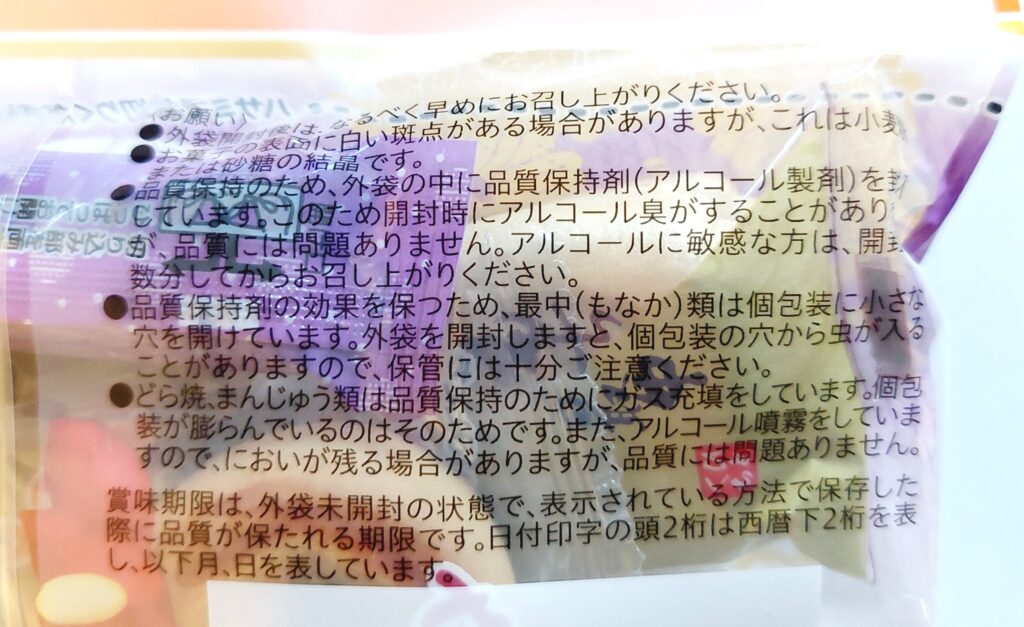 〈お願い〉
●外袋開封後は、なるべく早めにお召し上がりください。
●お菓子の表面に白い斑点がある場合がありますが、これは小麦
または砂糖の結晶です。
●品質保持のため、外袋の中に品質保持剤(アルコール製剤)を封
しています。このため開封時にアルコール臭がすることがあり
が、品質には問題ありません。アルコールに敏感な方は、開封
数分してからお召し上がりください。
●品質保持剤の効果を保つため、最中(もなか)類は個包装に小さな
穴を開けています。外袋を開封しますと、個包装の穴から虫が入る
ことがありますので、保管には十分ご注意ください。
●どら焼、まんじゅう類は品質保持のためにガス充填をしています。個包
装が膨らんでいるのはそのためです。また、アルコール噴霧をしていま
すので、においが残る場合がありますが、品質には問題ありません。
賞味期限は、外袋未開封の状態で、表示されている方法で保存した
際に品質が保たれる期限です。日付印字の頭2桁は西暦下2桁を表
し、以下月、日を表しています。